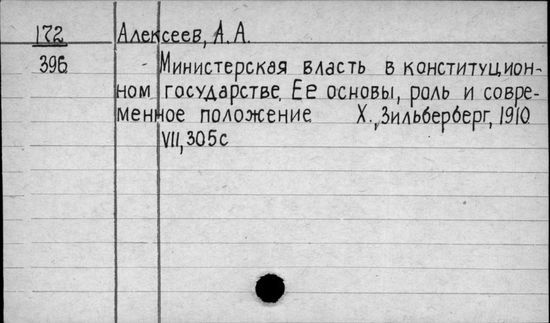 172 Алексеев, А. А.
396 - Министерская власть в конституцион-
ном государстве. Ее основы, роль и совре-
менное положение Х., Зильберберг, 1910
VII, 305с